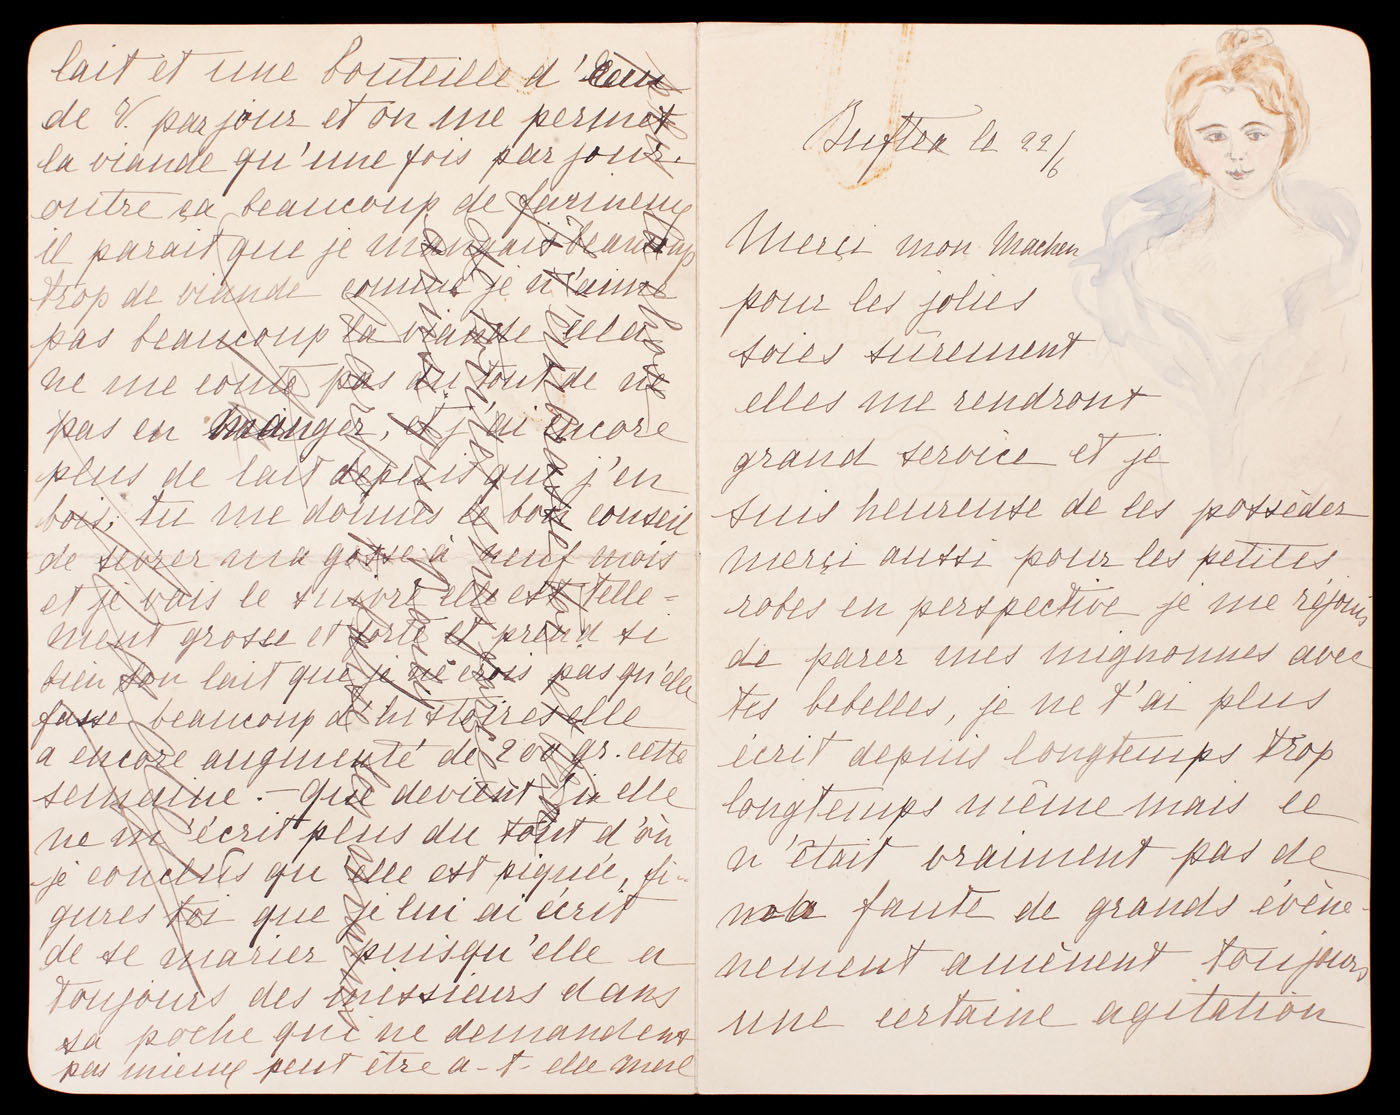 Buftea le 22/6
Merçi mon Machen
pour les jolies
soies sûrement
elles me rendront
grand service et je
suis heureuse de les possèder
merçi aussi pour les petites
robes en perspective je me réjouis
de parer mes mignonnes avec
tes bebelles, je ne t'ai plus
écrit depuis longtemps trop
longtemps même mais ce
n'était vraiment pas de
ma faute de grands évène-
nement amènent toujours
une certaine agitation
lait et une bouteille d'eau
de V. par jour et on me permet
la viande qu'une fois par jour.
outre ça beaucoup de farineux
il parait que je mangais beaucoup
trop de viande comme je n'aime
pas beaucoup la viande cela
ne me coute pas du tout de ne
pas en manger, et j'ai encore
plus de lait depuis que j'en
bois; tu me donnes le bon conseil
de sevrer ma gosse à neuf mois
et je vais le suivre elle est telle=
ment grosse et forte et prend si
bien son lait que je ne crois pas qu'elle
fasse beaucoup d'histoires elle
a encore augmenté de 200 gr. cette
semaine. — Que devient elle
ne m'écrit plus du tout d'où
je conclus qu'elle est piquée, fi-
gures toi que je lui ai écrit
de se marier puisqu'elle a
toujours des messieurs dans
sa poche qui ne demandent
pas mieux peut être a-t-elle